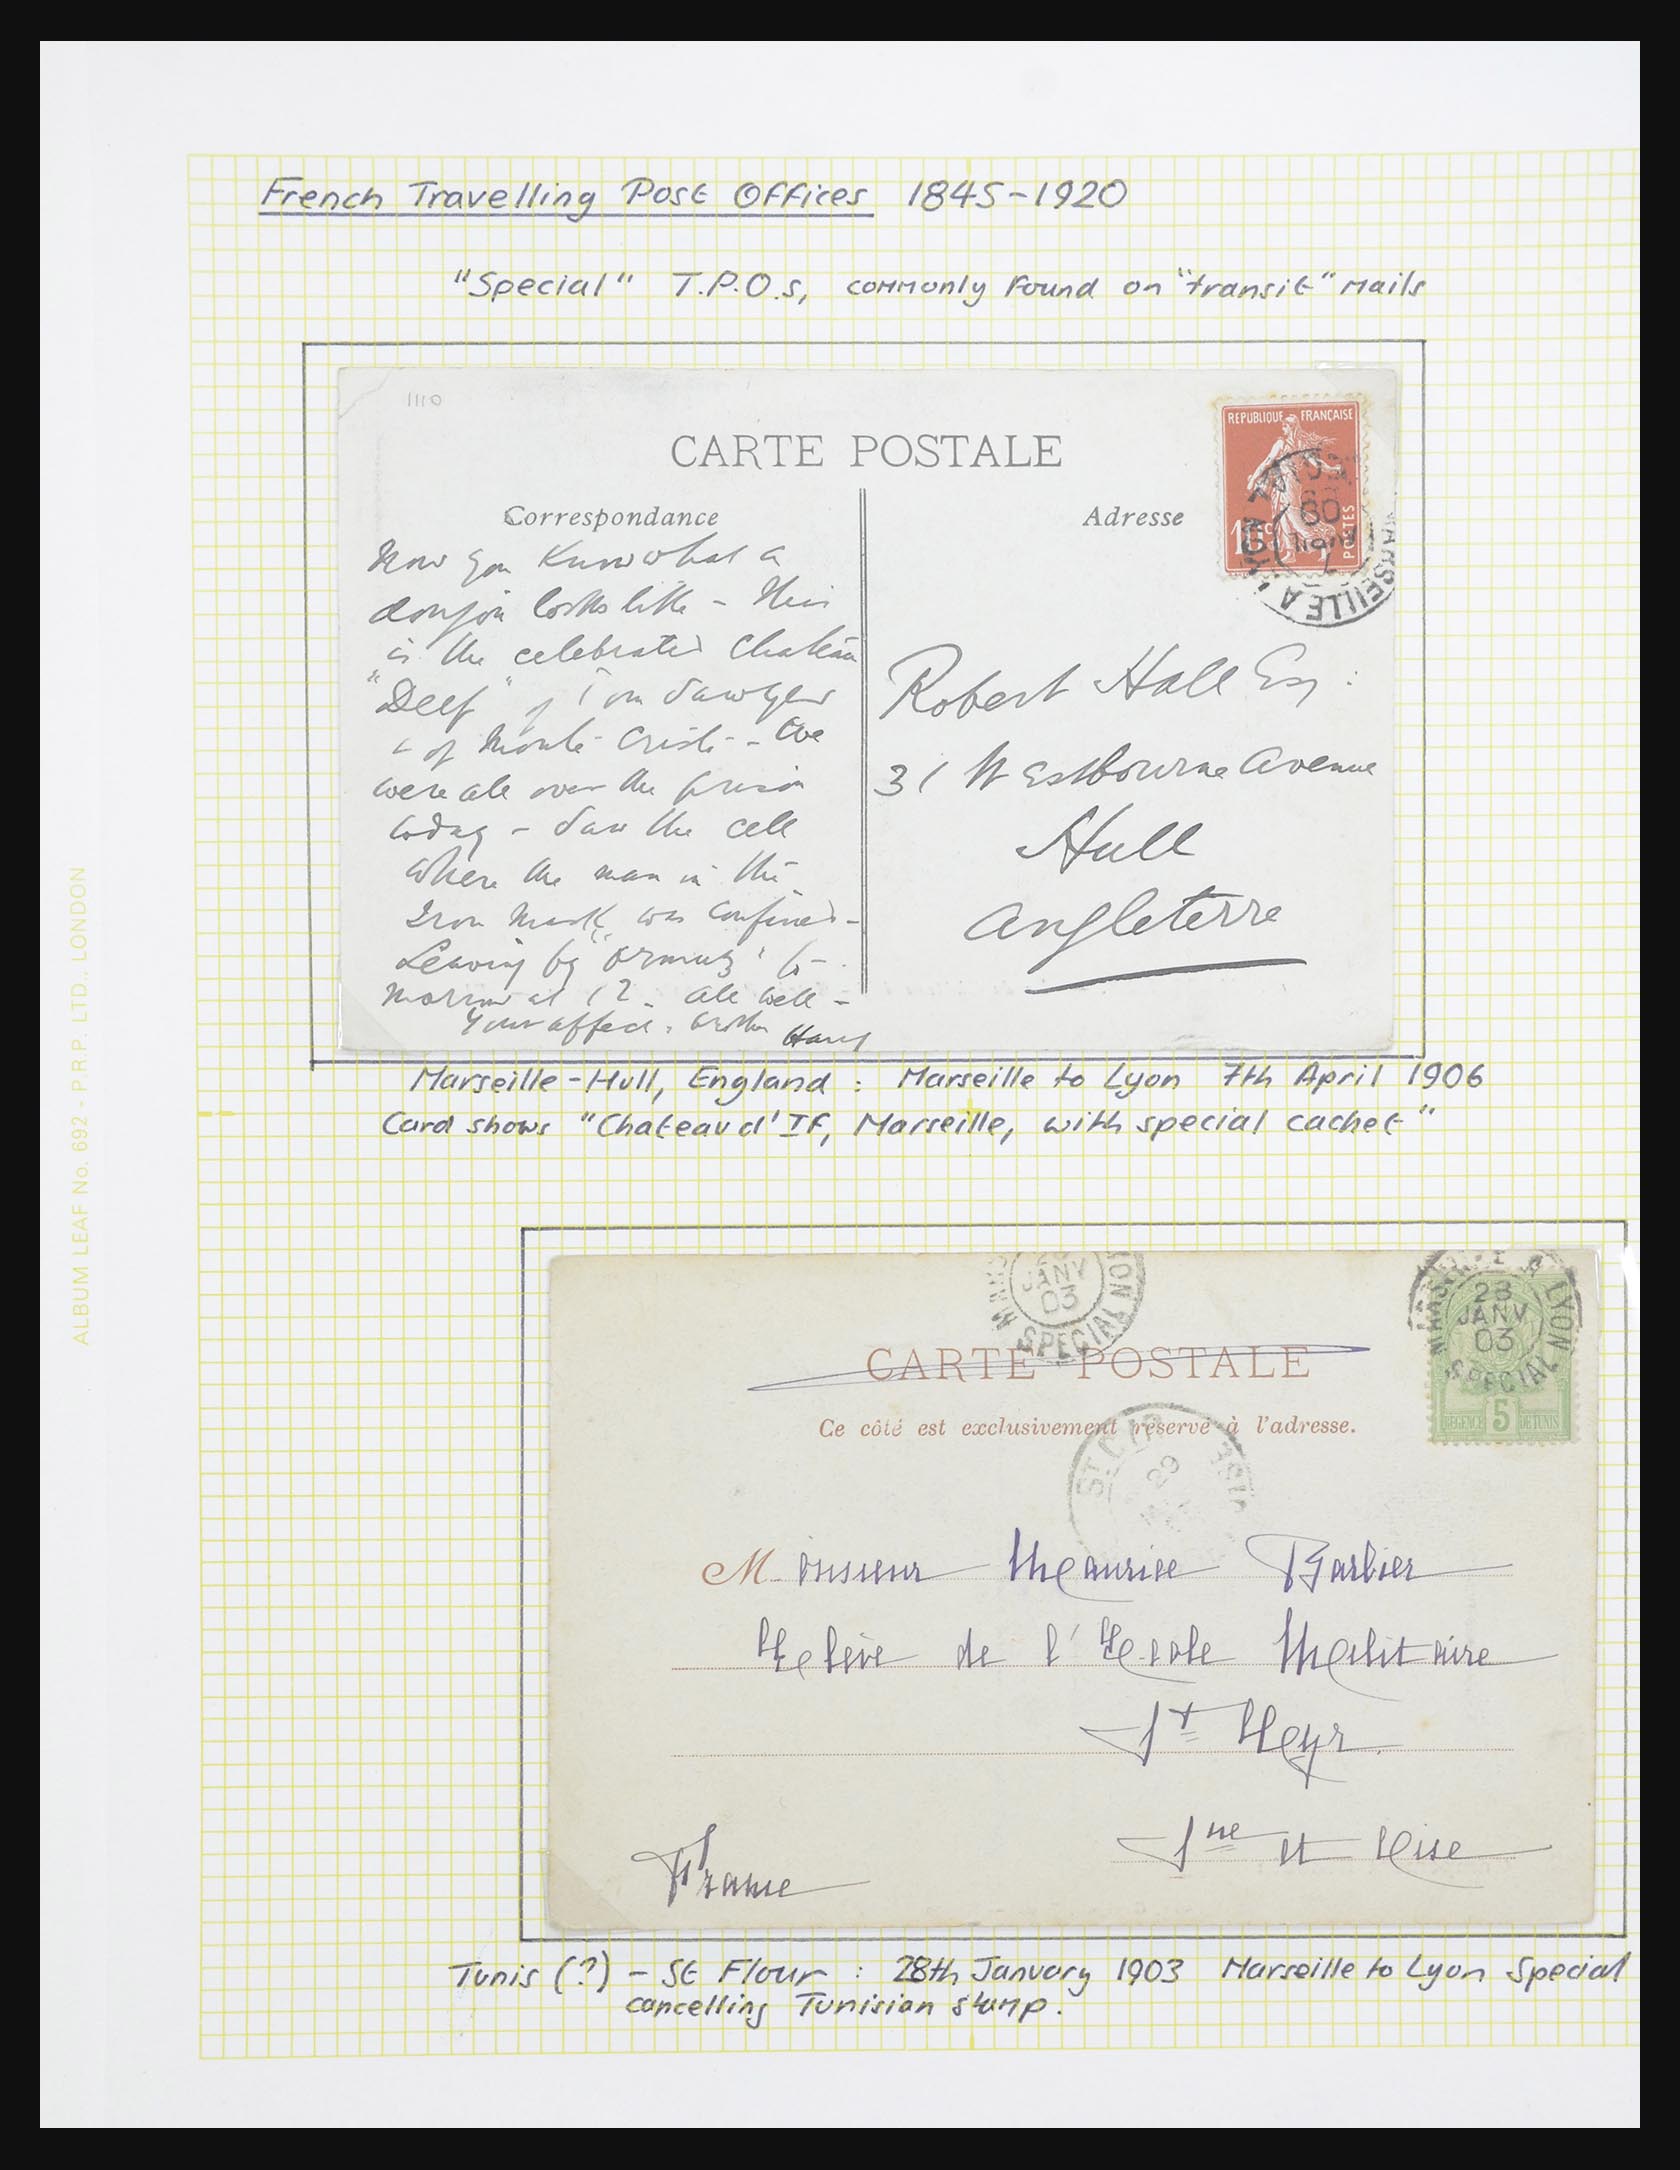 French Travelling Post Offices 1845-1920
"Special" T.P.O.s, commonly found on "transit" mails
1110
CARTE POSTALE
Correspondance
Adresse
REPUBLIQUE FRANÇAISE
10c
POSTES
MARSEILLE A
Now you know what a
donjon looks like - This
is the celebrated Chateau
"Deef" of Tom Sawyer
& of Monte Cristo - We
were all over the prison
today - Saw the cell
where the man in the
Iron Mask was confined -
Leaving by "Ormuz" to-
morrow at 12. All well -
Your affect. brother Harry
Robert Hall Esq:
31 Westbourne Avenue
Hull
Angleterre
Marseille-Hull, England : Marseille to Lyon 7th April 1906
Card shows "Chateau d'If, Marseille, with special cachet"
JANV
03
SPECIAL
MARSEILLE A LYON
28
JANV
03
SPECIAL
RÉGENCE 5 DE TUNIS
CARTE POSTALE
Ce côté est exclusivement réservé à l'adresse.
ST CYR
29
Monsieur Maurice Barbier
Elève de l'Ecole Militaire
St Cyr
Sne et Oise
France
Tunis (?) - St Flour : 28th January 1903 Marseille to Lyon Special
cancelling Tunisian stamp.
ALBUM LEAF No. 692 - P.R.P. LTD., LONDON